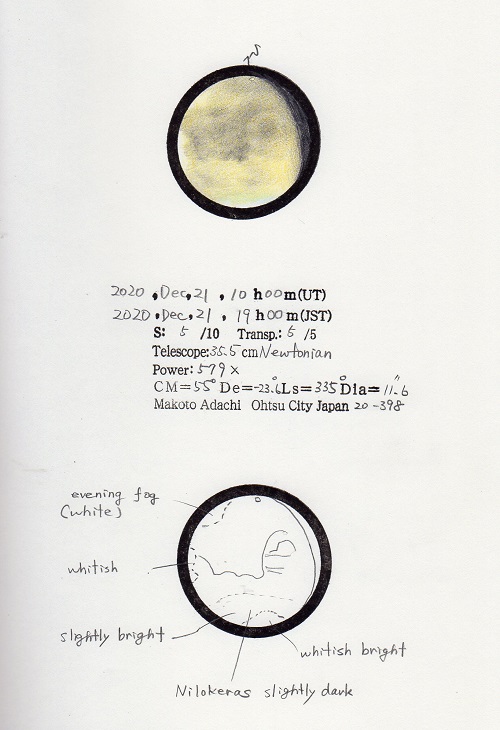 S
2020 , Dec, 21 , 10 h 00 m (UT)
2020 , Dec, 21 , 19 h 00 m (JST)
S: 5 /10 Transp.: 5 /5
Telescope: 35.5 cm Newtonian
Power: 579 ×
CM=55° De=-23.6° Ls=335° Dia=11.6"
Makoto Adachi Ohtsu City Japan 20-398
evening fog
(white)
whitish
slightly bright
whitish bright
Nilokeras slightly dark